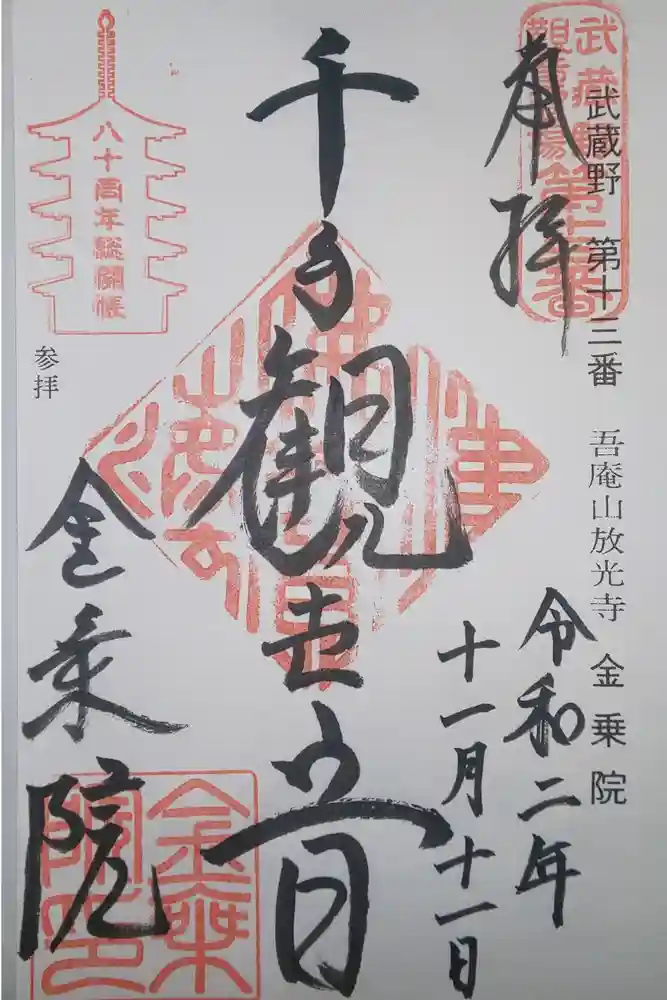 武蔵野 第十三番 吾庵山放光寺 金乗院
奉拝
令和二年
十一月十一日
千手観世音
八十周年総開帳
参拝
金乗院
金乗
院印